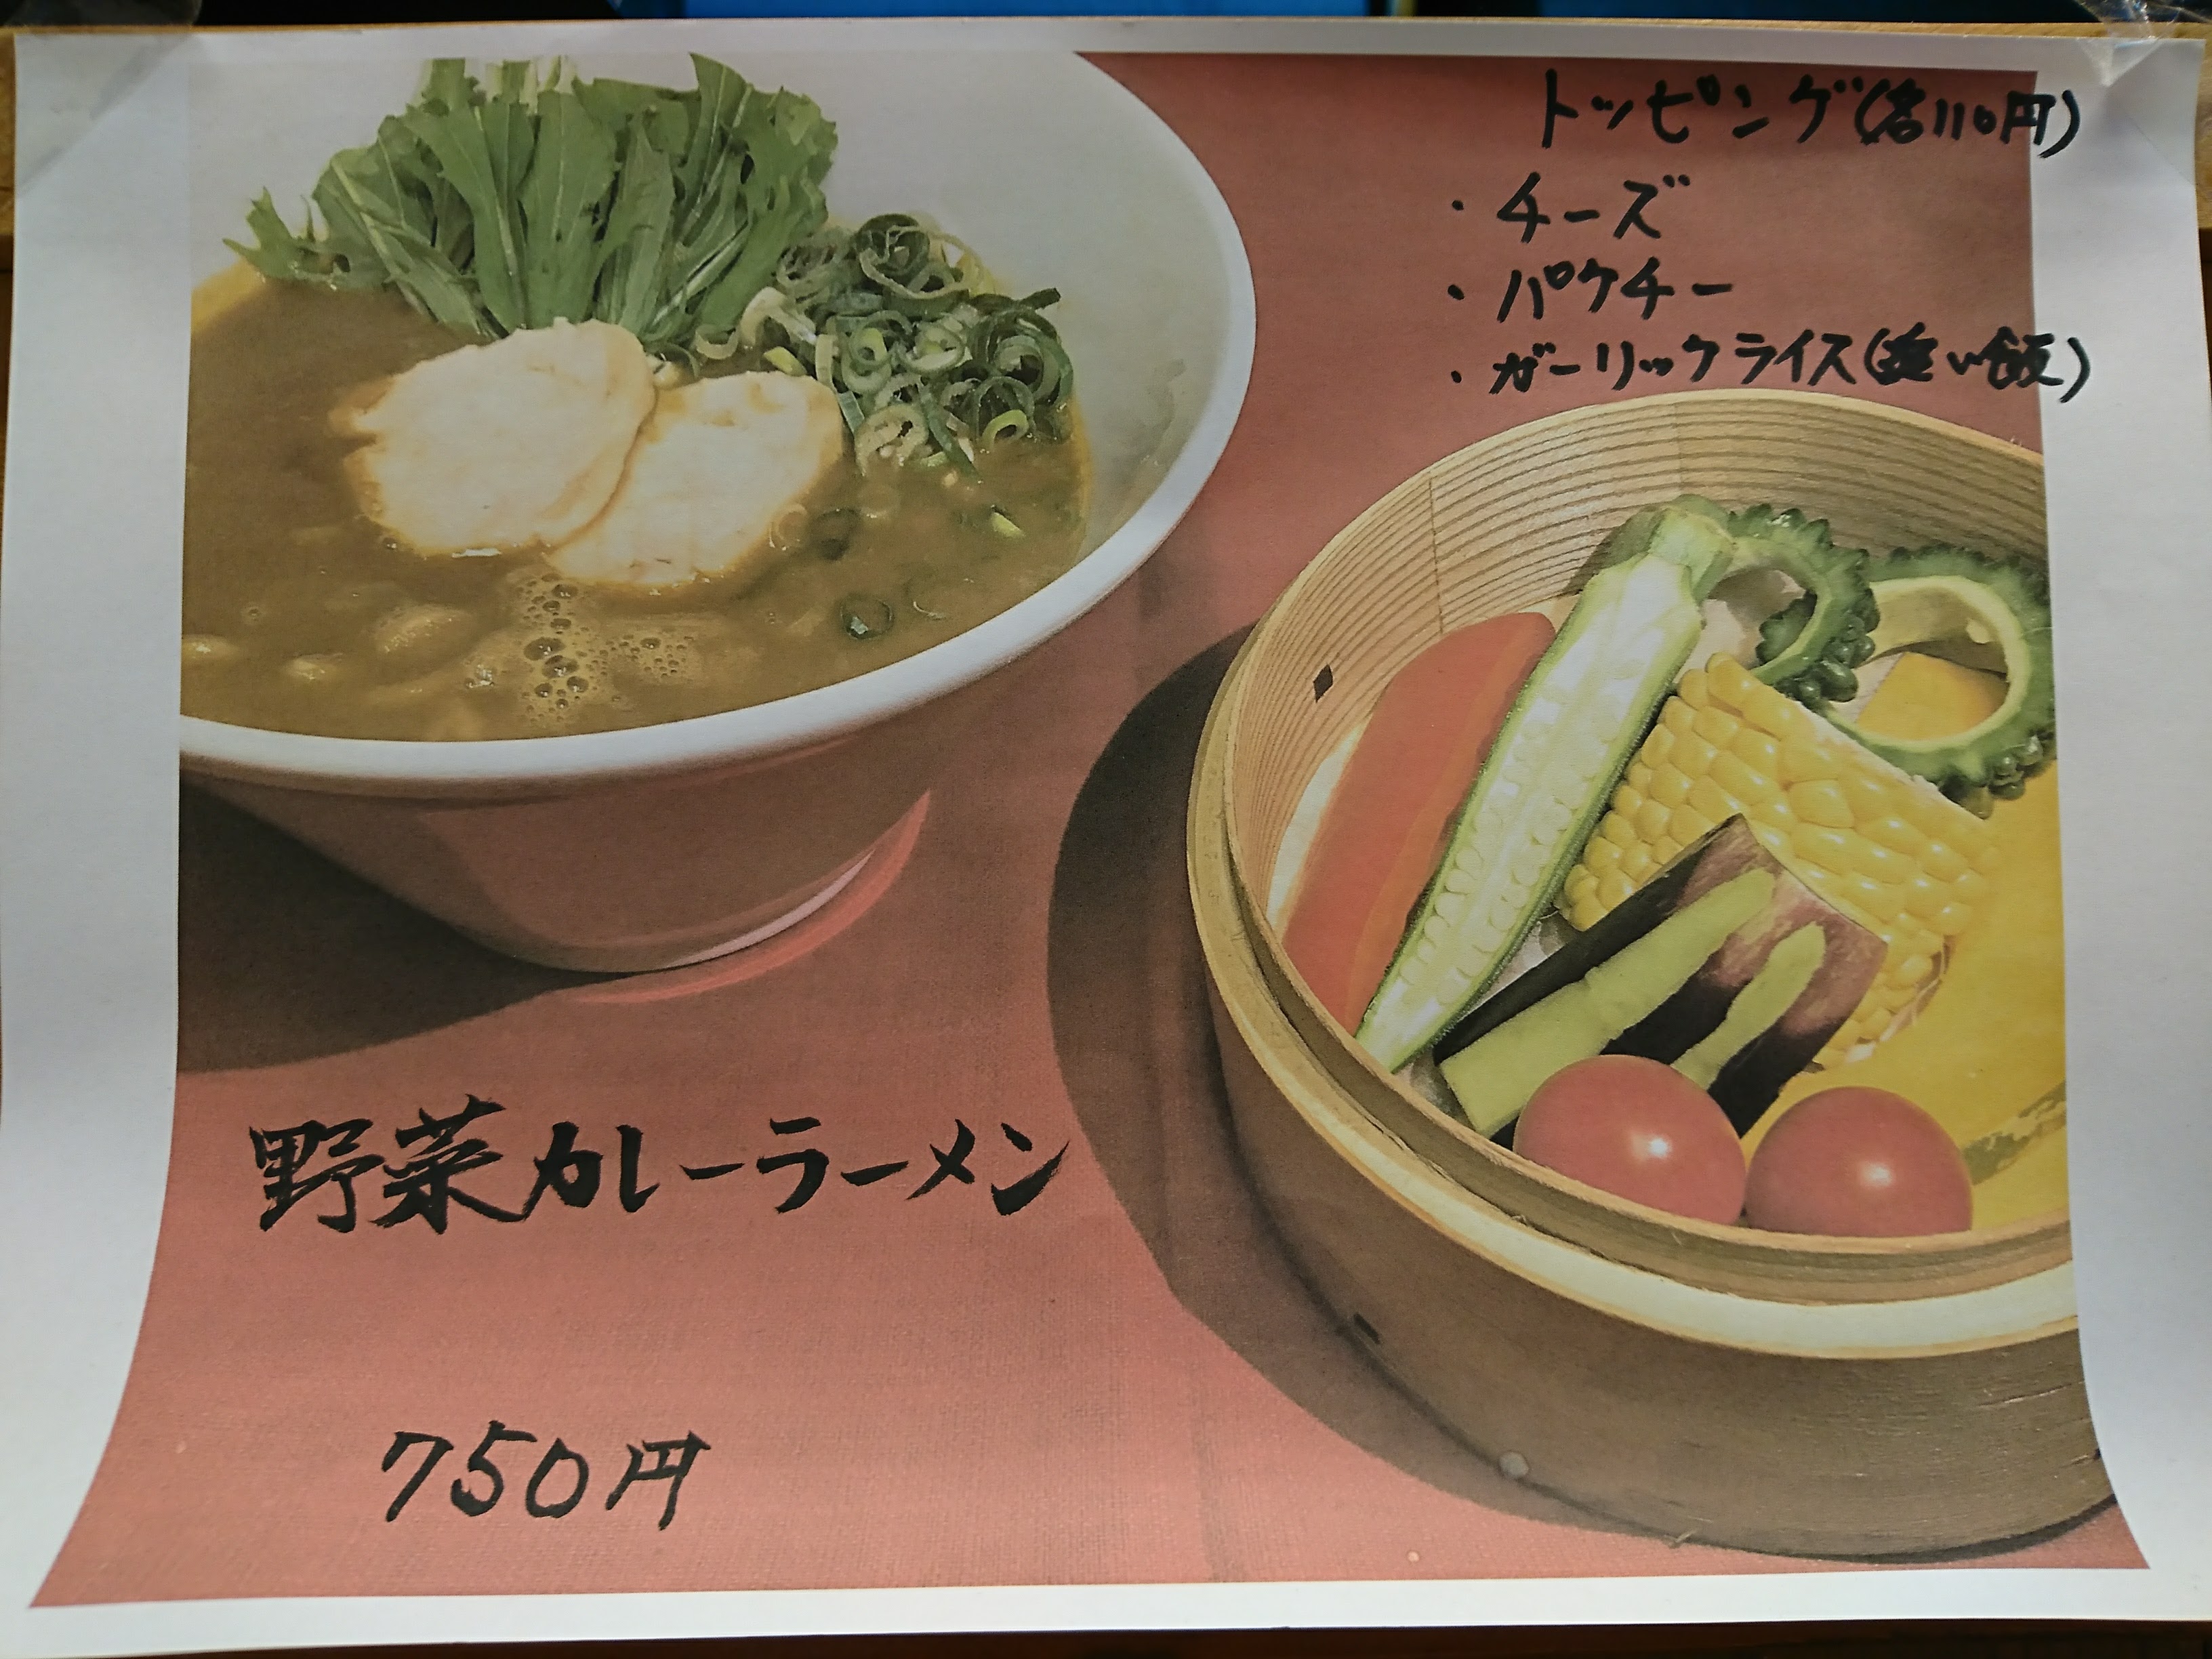 トッピング(各110円)
・チーズ
・パクチー
・ガーリックライス(追い飯)
野菜カレーラーメン
750円